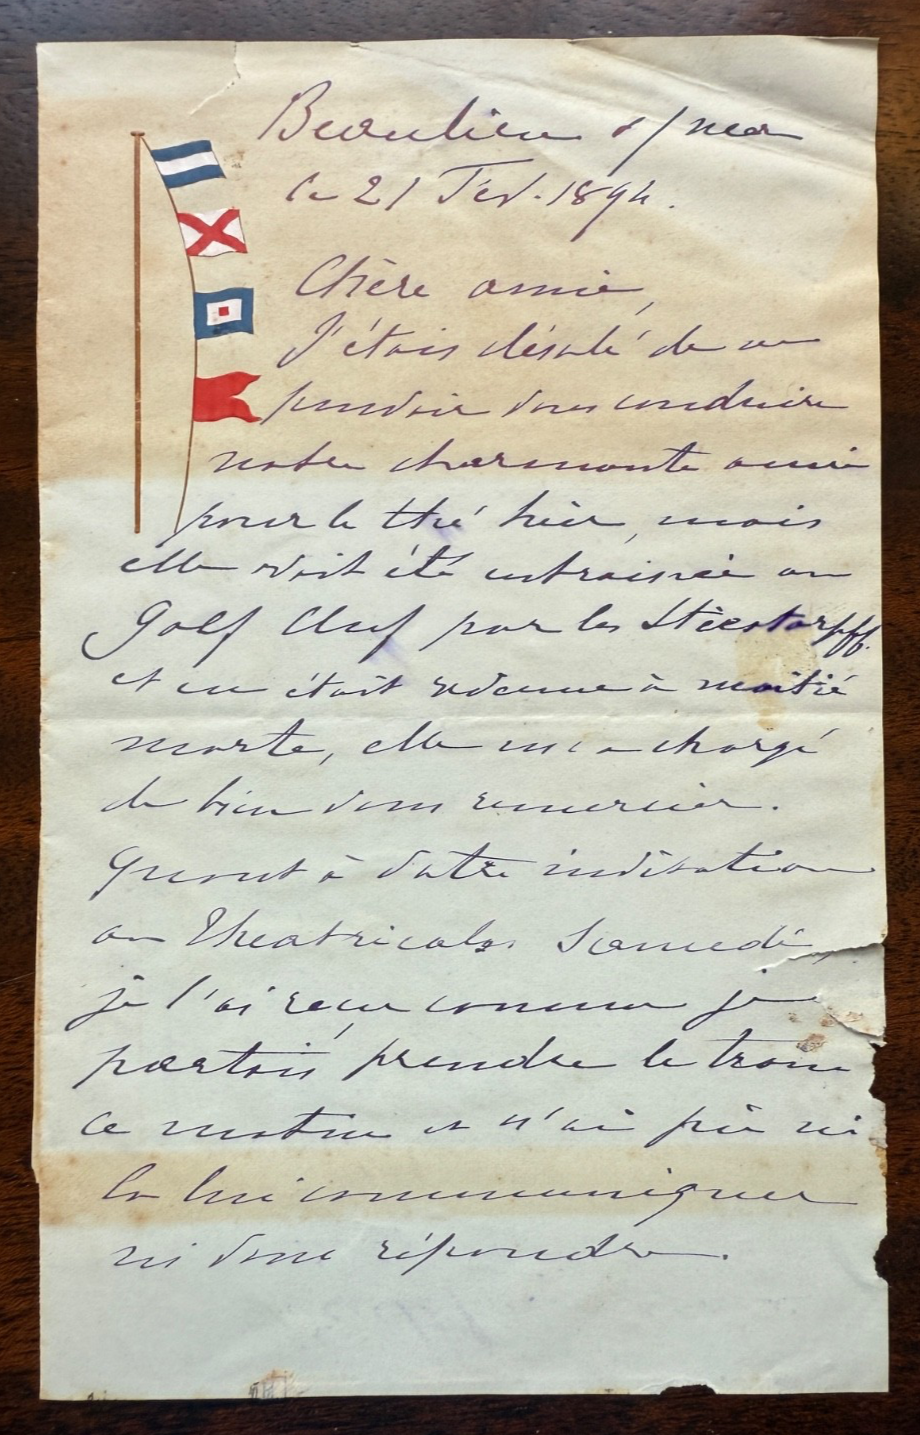 Beaulieu s/mer
le 21 Fev. 1894.
Chère amie,
J'étais désolé de ne
pouvoir vous conduire
notre charmante amie
pour le thé hier, mais
elle avait été entrainée au
Golf Club par les
et en était revenue à moitié
morte, elle m'a chargé
de bien vous remercier.
Quant à votre invitation
au Theatricals Samedi,
je l'ai reçu comme je
partais prendre le train
ce matin et n'ai pu ni
la lui communiquer
ni vous répondre.